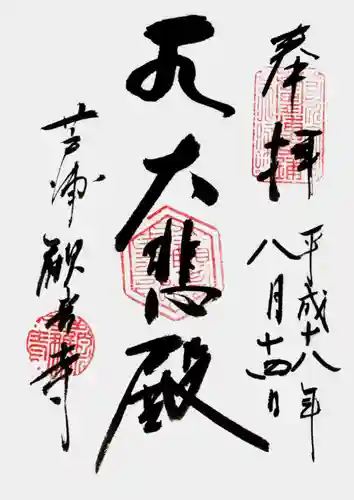 奉拝
平成十八年
八月十四日
大悲殿
芦浦
観音寺